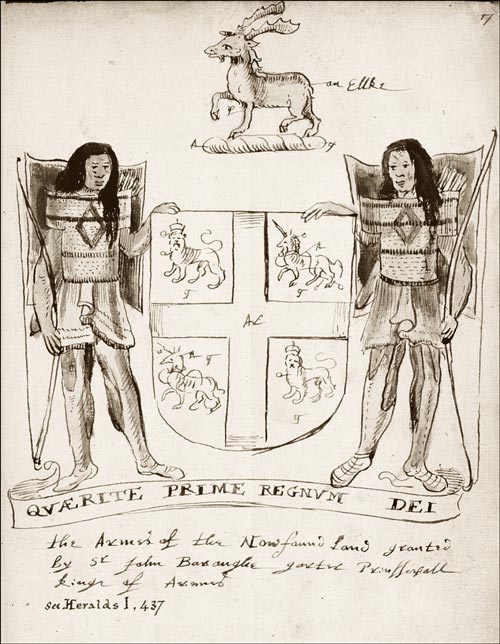 an Ellke
A
QVÆRITE PRIME REGNVM DEI
the Armes of the Newfound Land granted
by Sr John Boraughe garter Prinsserpall
kinge of Armes
see Heralds I, 437